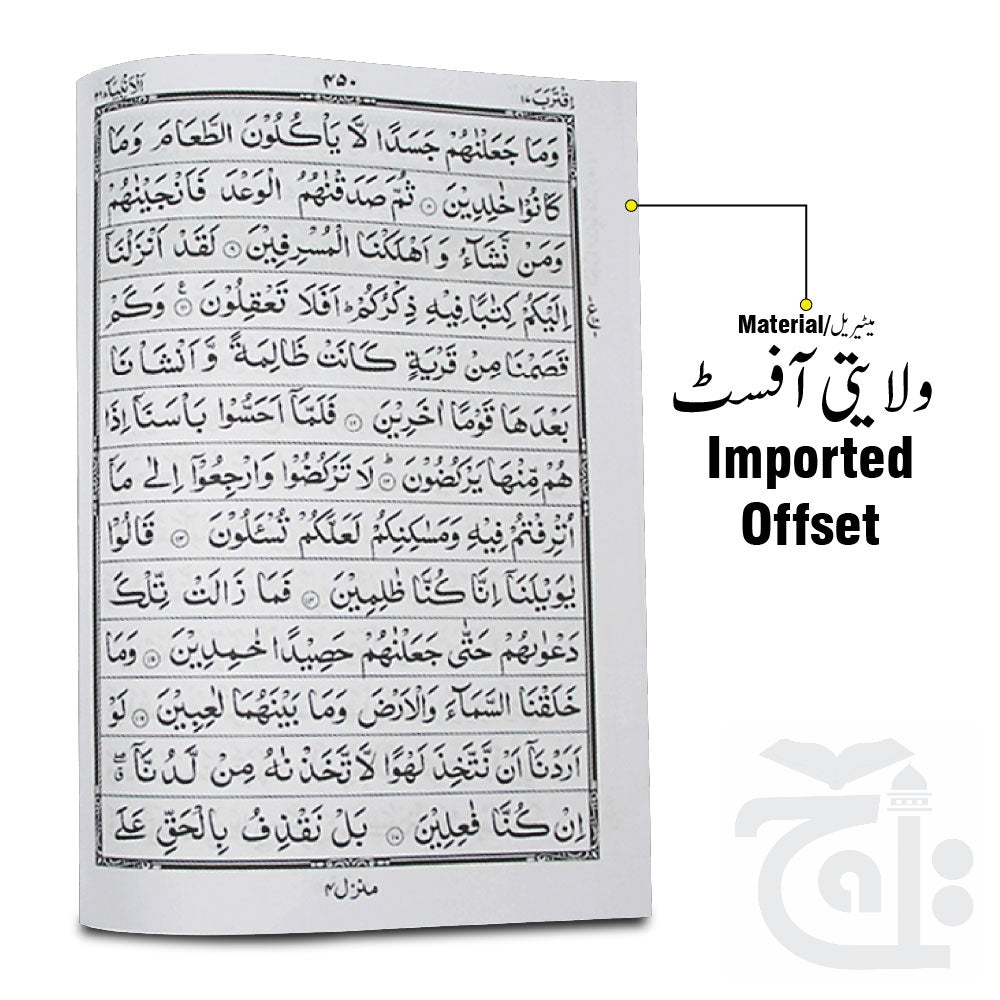 اقترب ١٧
٤٥٠
الانبياء ٢١
وَمَا جَعَلْنٰهُمْ جَسَدًا لَّا يَاْكُلُوْنَ الطَّعَامَ وَمَا
كَانُوْا خٰلِدِيْنَ ۝٨ ثُمَّ صَدَقْنٰهُمُ الْوَعْدَ فَاَنْجَيْنٰهُمْ
وَمَنْ نَّشَآءُ وَ اَهْلَكْنَا الْمُسْرِفِيْنَ ۝٩ لَقَدْ اَنْزَلْنَآ
اِلَيْكُمْ كِتٰبًا فِيْهِ ذِكْرُكُمْ ؕ اَفَلَا تَعْقِلُوْنَ ۝١٠ وَكَمْ
قَصَمْنَا مِنْ قَرْيَةٍ كَانَتْ ظَالِمَةً وَّ اَنْشَاْنَا
بَعْدَهَا قَوْمًا اٰخَرِيْنَ ۝١١ فَلَمَّآ اَحَسُّوْا بَاْسَنَآ اِذَا
هُمْ مِّنْهَا يَرْكُضُوْنَ ؕ۝١٢ لَا تَرْكُضُوْا وَارْجِعُوْٓا اِلٰى مَآ
اُتْرِفْتُمْ فِيْهِ وَمَسٰكِنِكُمْ لَعَلَّكُمْ تُسْـَٔلُوْنَ ۝١٣ قَالُوْا
يٰوَيْلَنَآ اِنَّا كُنَّا ظٰلِمِيْنَ ۝١٤ فَمَا زَالَتْ تِّلْكَ
دَعْوٰىهُمْ حَتّٰى جَعَلْنٰهُمْ حَصِيْدًا خٰمِدِيْنَ ۝١٥ وَمَا
خَلَقْنَا السَّمَآءَ وَالْاَرْضَ وَمَا بَيْنَهُمَا لٰعِبِيْنَ ۝١٦ لَوْ
اَرَدْنَآ اَنْ نَّتَّخِذَ لَهْوًا لَّا تَّخَذْنٰهُ مِنْ لَّدُنَّآ ۖ ق
اِنْ كُنَّا فٰعِلِيْنَ ۝١٧ بَلْ نَقْذِفُ بِالْحَقِّ عَلَى
منزل ٤
Material/میٹیریل
ولایتی آفسٹ
Imported
Offset
تاج